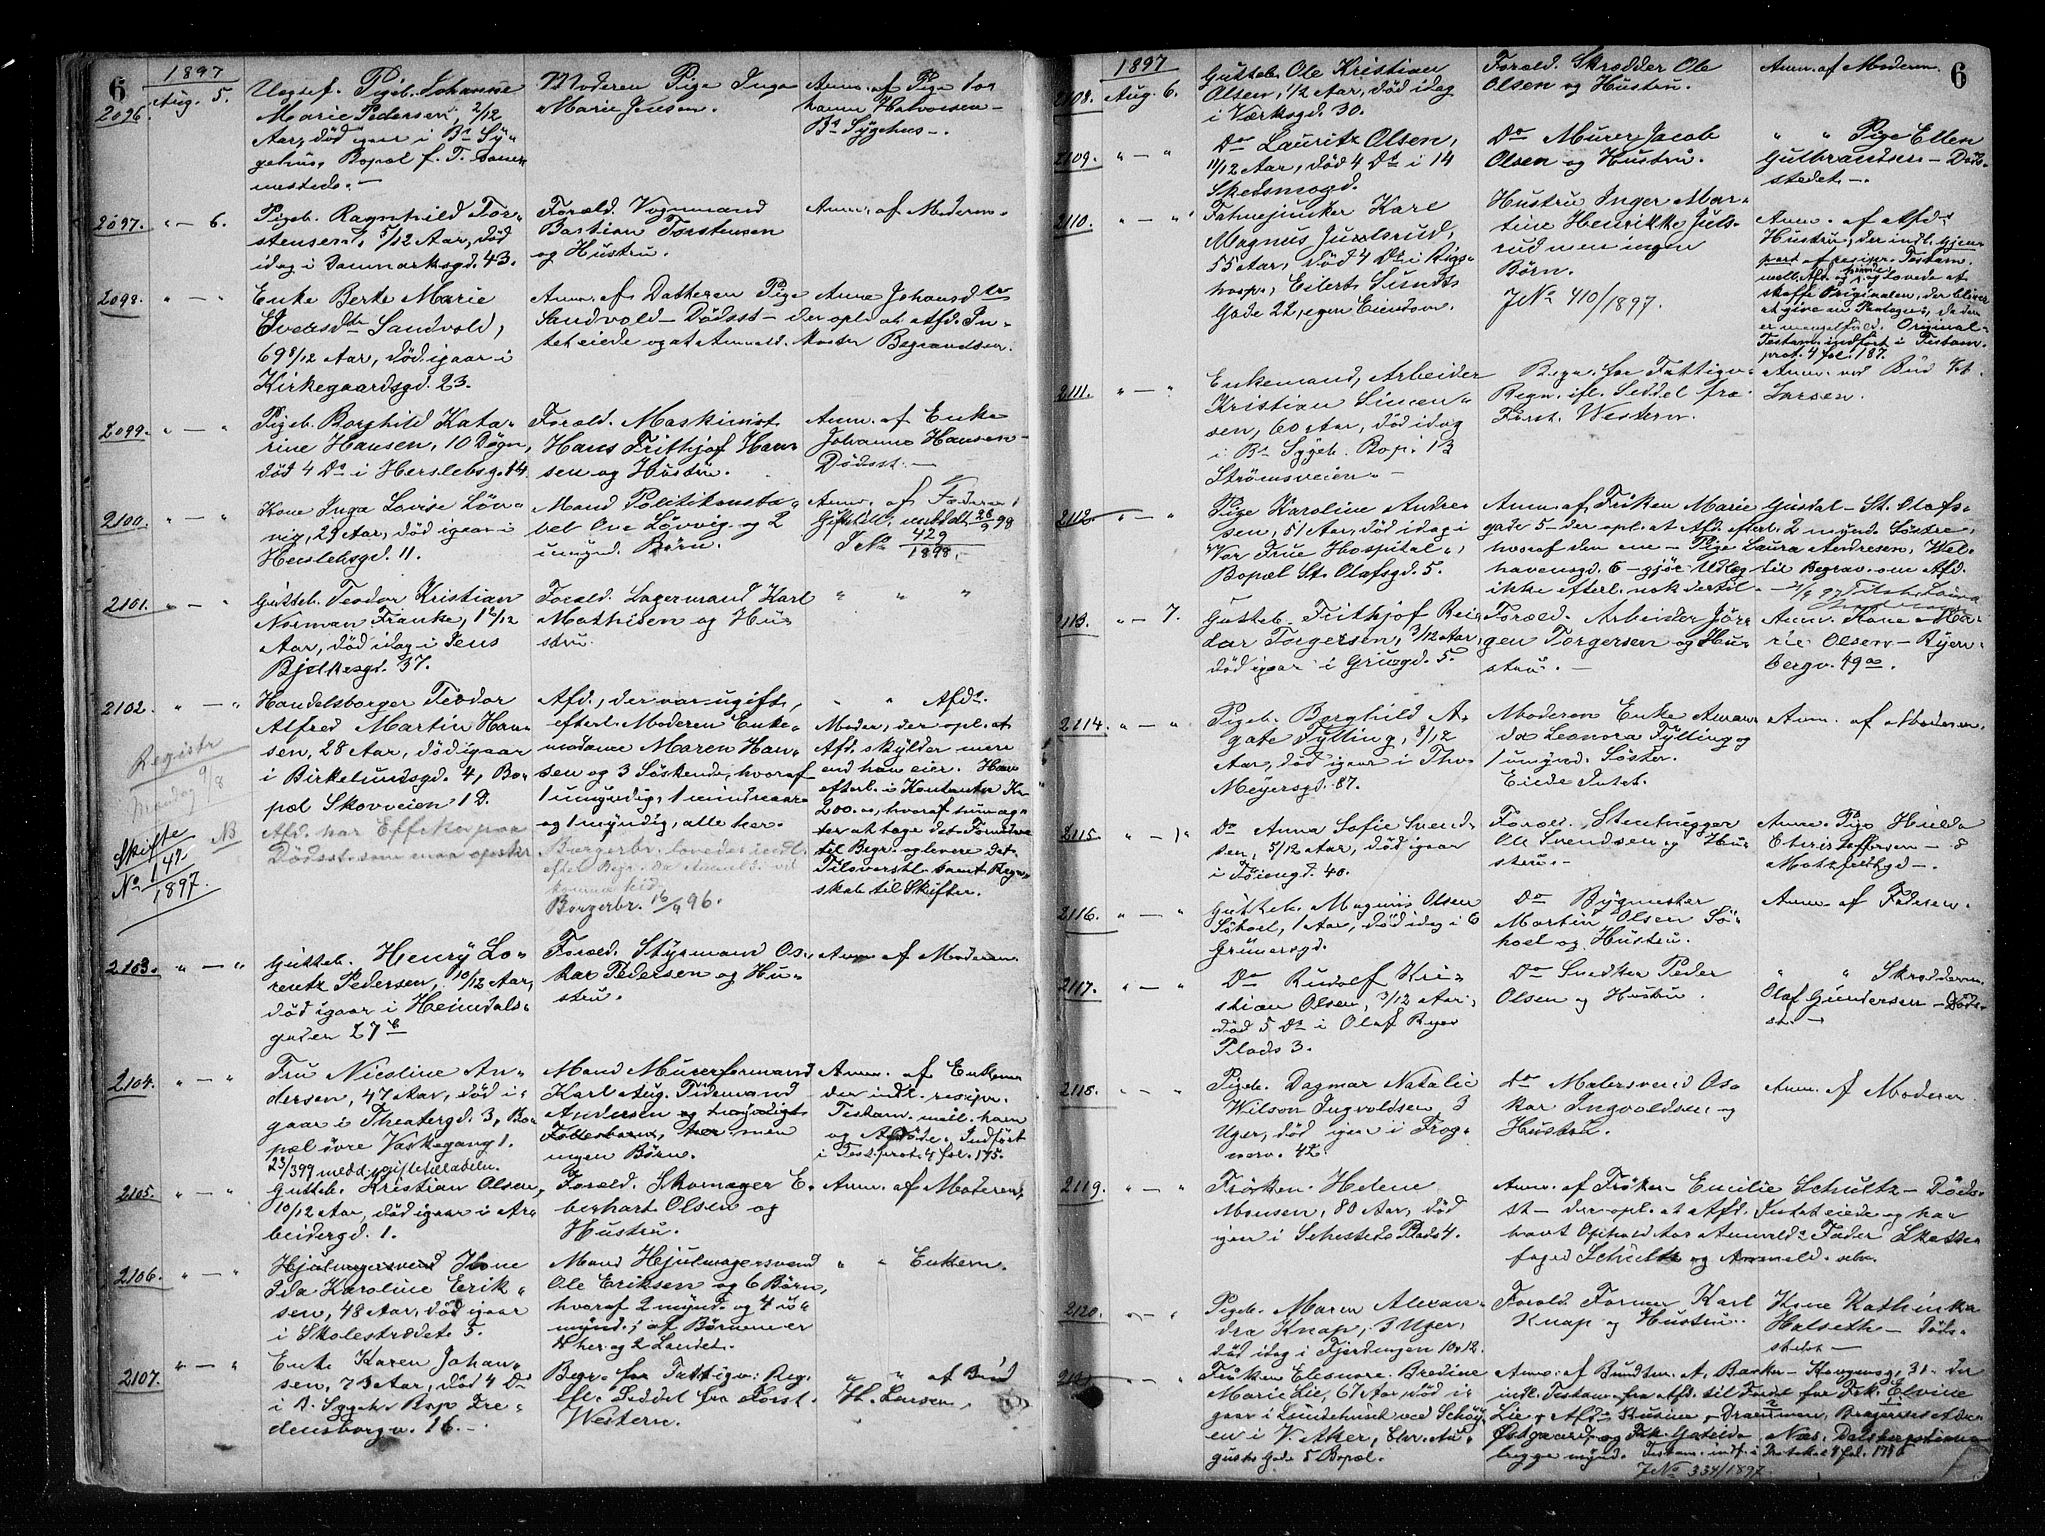 6
1897
2096. Aug. 5.
Uegtef. Pigeb. Johanne
Marie Pedersen, 2/12
Aar, død igaar i By. Sy-
gehus, Bopæl f. T.
Moderen Pige Inga
Marie Jensen.
Anm. af Pige Jo-
hanne Halvorsen
Bs Sygehus.
2097. " — 6.
Pigeb. Ragnhild Tor-
stensen, 5/12 Aar, død
idag i Danmarksgd. 43.
Foræld. Vognmand
Bastian Torstensen
og Hustru.
Anm. af Moderen.
2098. " — "
Enke Berte Marie
Iversdtr Sandvold,
69 8/12 Aar, død igaar i
Kirkegaardsgd. 23.
Anm. af Datteren Pige Anne Johansdtr
Sandvold — Dødsst — der opl. at Afd. In-
tet eiede og at Anmeld. koster Begravelsen.
2099. " — "
Pigeb. Borghild Kata-
rine Hansen, 10 Døgn,
død 4 Ds i Herslebsg. 14.
Foræld. Maskinist
Hans Frithjof Han-
sen og Hustru.
Anm. af Enke
Johanne Hansen
Dødsst. —
2100. " — "
Kone Inga Lovise Løv-
vig, 29 Aar, død igaar i
Herslebsgd. 11.
Mand Politikonsta-
bel Ove Løvvig og 2
umynd. Børn.
Anm. af Faderen
Giftetill. meddelt 28/9 98
J No 429/1898.
2101. " — "
Gutteb. Teodor Kristian
Norman Franke,
Aar, død idag i Jens
Bjelkesgd. 37.
Foræld. Lagermand Karl
Mathisen og Hu-
stru.
" " "
2102. " — "
Handelsborger Teodor
Alfred Martin Han-
sen, 28 Aar, død igaar
i Birkelundsgd. 4, Bo-
pæl Skovveien 1 D.
Afd. har Effekter paa
Dødsst. som maa
Registr
Mandag 9/8
Skifte NB
No 147/1897.
Afd., der var ugift,
efterl. Moderen Enke-
madame Maren Han-
sen og 3 Søskende, hvoraf
1 umyndig, 1 mindreaar.
og 1 myndig, alle her.
Borgerbr. lovedes indl.
efter Begr.
Borgerbr. 16/9 96.
" " Afds.
Moder, der opl. at
Afd. skylder mere
end han eier. Han
efterl. i Kontanter Kr.
200.00, hvoraf hun ag-
ter at tage det Fornødne
til Begr. og levere det
Tilovers tilligemed Regn-
skab til Skiften.
2103. " — "
Gutteb. Henry Lo-
rentz Pedersen, 10/12 Aar,
død igaar i Heimdals-
gaden 27 b
Foræld. Styrmand Os-
kar Pedersen og Hu-
stru.
Anm. af Moderen.
2104. " — "
Fru Nicoline An-
dersen, 47 Aar, død i-
gaar i Theatergd. 3, Bo-
pæl øvre Vaskegang 1.
23/3 99 medd. giftetilladeln.
Mand Murerformand
Karl Aug. Tidemand
Andersen og
Fællesbarn, men
ingen Børn.
Anm. af Enkem.
der indl. resipr.
Testam. mell. ham
og Afdøde. Indført
i Test. prot. 4 fol. 175.
2105. " — "
Gutteb. Kristian Olsen,
10/12 Aar, død igaar i Ar-
beidergd. 1.
Foræld. Skomager E-
berhart Olsen og
Hustru.
Anm. af Moderen,
2106. " — "
Hjulmagersvend Kone
Ida Karoline Erik-
sen, 48 Aar, død igaar
i Skolestrædet 5.
Mand Hjulmagersvend
Ole Eriksen og 6 Børn,
hvoraf 2 mynd. og 4 u-
mynd.; af Børnene er
4 her og 2 Landet.
" " Enkem.
2107. " — "
Enke Karen Johan-
sen, 73 Aar, død 4 Ds
i B. Sygeh. Bop. Fre-
densborgv. 16.
Begr. for Fattigv. Reg.
ifl. Seddel fra Forst.
Western.
" " af Bud
Th. Larsen.
1897
6
2108. Aug. 6.
Gutteb. Ole Kristian
Olsen, 1/2 Aar, død idag
i Værksgd. 30.
Foræld. Skrædder Ole
Olsen og Hustru.
Anm. af Moderen.
2109. " — "
Do Lauritz Olsen,
11/12 Aar, død 4 Ds i 14
Skedsmogd.
Do Murer Jacob
Olsen og Hustru.
" " Pige Ellen
Gulbrandsen — Døds-
stedet —.
2110. " — "
Fanejunker Karl
Magnus Juulsrud,
55 Aar, død 4 Ds i Rigs-
hosp., Eilert Sundts
Gade 22, egen Eiendom.
Hustru Inger Mar-
tine Henrikke Juls-
rud men ingen
Børn.
J No 410/1897.
Anm. af Afds
Hustru, der indl. Gjen-
part af resipr. Testam.
mell. Afd. og hende og lovede at
skaffe Originalen, der bliver
at give en Paategn., da den
er mangelfuld. Original-
Testam. indført i Testam.
prot. 4 fol. 187.
2111. " — "
Enkemand, Arbeider
Kristian Simen-
sen, 60 Aar, død idag
i Bs Sygeh. Bop. 13
Strømsveien. —
Begr. for Fattigv.
Regn. ifl. Seddel fra
Forst. Western.
Anm. ved Bud Th.
Larsen.
2112. " — "
Pige Karoline Andre-
sen, 51 Aar, død idag i
"Vor Frue Hospital",
Bopæl St. Olafsgd. 5.
Anm. af Frøken Marie Gustal — St. Olafs-
gade 5 — der opl. at Afd. efterl. 2 mynd. Søstre,
hvoraf den ene — Pige Laura Andresen, Wel-
havensgd. 6 — gjør Udlæg til Begrav. om Afd.
ikke efterl. nok dertil.
2113. " — 7.
Gutteb. Frithjof Rei-
dar Torgersen, 3/12 Aar,
død igaar i Grüngd. 5.
Foræld. Arbeider Jør-
gen Torgersen og Hu-
stru. —
Anm. Kone Ma-
rie Olsen — Ryen-
bergv. 49 aa.
2114. " — "
Pigeb. Borghild A-
gate Fylling, 8/12
Aar, død igaar i Thv.
Meyersgd. 87.
Moderen Enke Aman-
da Leonora Fylling og
1 umynd. Søster.
Eiede Intet.
Anm. af Moderen.
2115. " — "
Do Anna Sofie Svend-
sen, 5/12 Aar, død igaar
i Tøiengd. 40.
Foræld. Stenhugger
Ole Svendsen og Hu-
stru. —
Anm. Pige Hulda
Christoffersen — 8
Motzfeldtgd. —
2116. " — "
Gutteb. Magnus Olsen
Søhoel, 1 Aar, død idag i 6
Grünersgd.
Do Bygmester
Martin Olsen Sø-
hoel og Hustru.
Anm. af Faderen.
2117. " — "
Do Rudolf Kri-
stian Olsen, 3/12 Aar,
død 5 Ds i Olaf Ryes
Plads 3.
Do Snedker Peder
Olsen og Hustru.
" " Skrædderm.
Olaf Gundersen — Døds-
st. —
2118. " — "
Pigeb. Dagmar Natalie
Wilson Ingvoldsen, 3
Uger, død igaar i Frog-
nerv. 42.
Do Malersvend Os-
kar Ingvoldsen og
Hustru.
Anm. af Moderen.
2119. " — "
Frøken Helene
Monsen, 80 Aar, død
igaar i Sehesteds Plads 4.
Anm. af Frøken Emilie Schultz — Døds-
st — der opl. at Afd. Intet eiede og har
havt Ophold hos Anmeld.s Fader Skatte-
foged Schultz og Anmeld. selv.
2120. " — "
Pigeb. Maren Alexan-
dra Knap, 3 Uger,
død idag i Fjerdingen 10 & 12.
Foræld. Former Karl
Knap og Hustru.
Kone Kathinka
Halseth — Døds-
stedet —
2121
Frøken Elenore Bredine
Marie Lie, 67 Aar, død i-
gaar i Lindehuset ved Schøy-
en i V. Aker, Chr. Au-
gusts Gade 5 Bopæl.
Anm. af Bundtm. A. Backer — Kongensg. 31. der
indl. Testam. fra Afd. til Fordel for Frk. Elvine
Lie, Afds Kusine, Drammen, Bragernes
Østgaard og Frk. Gatelda Næs,
begge mynd. Testam. indf. i Protokol 4 fol. 176
J No 334/1897.